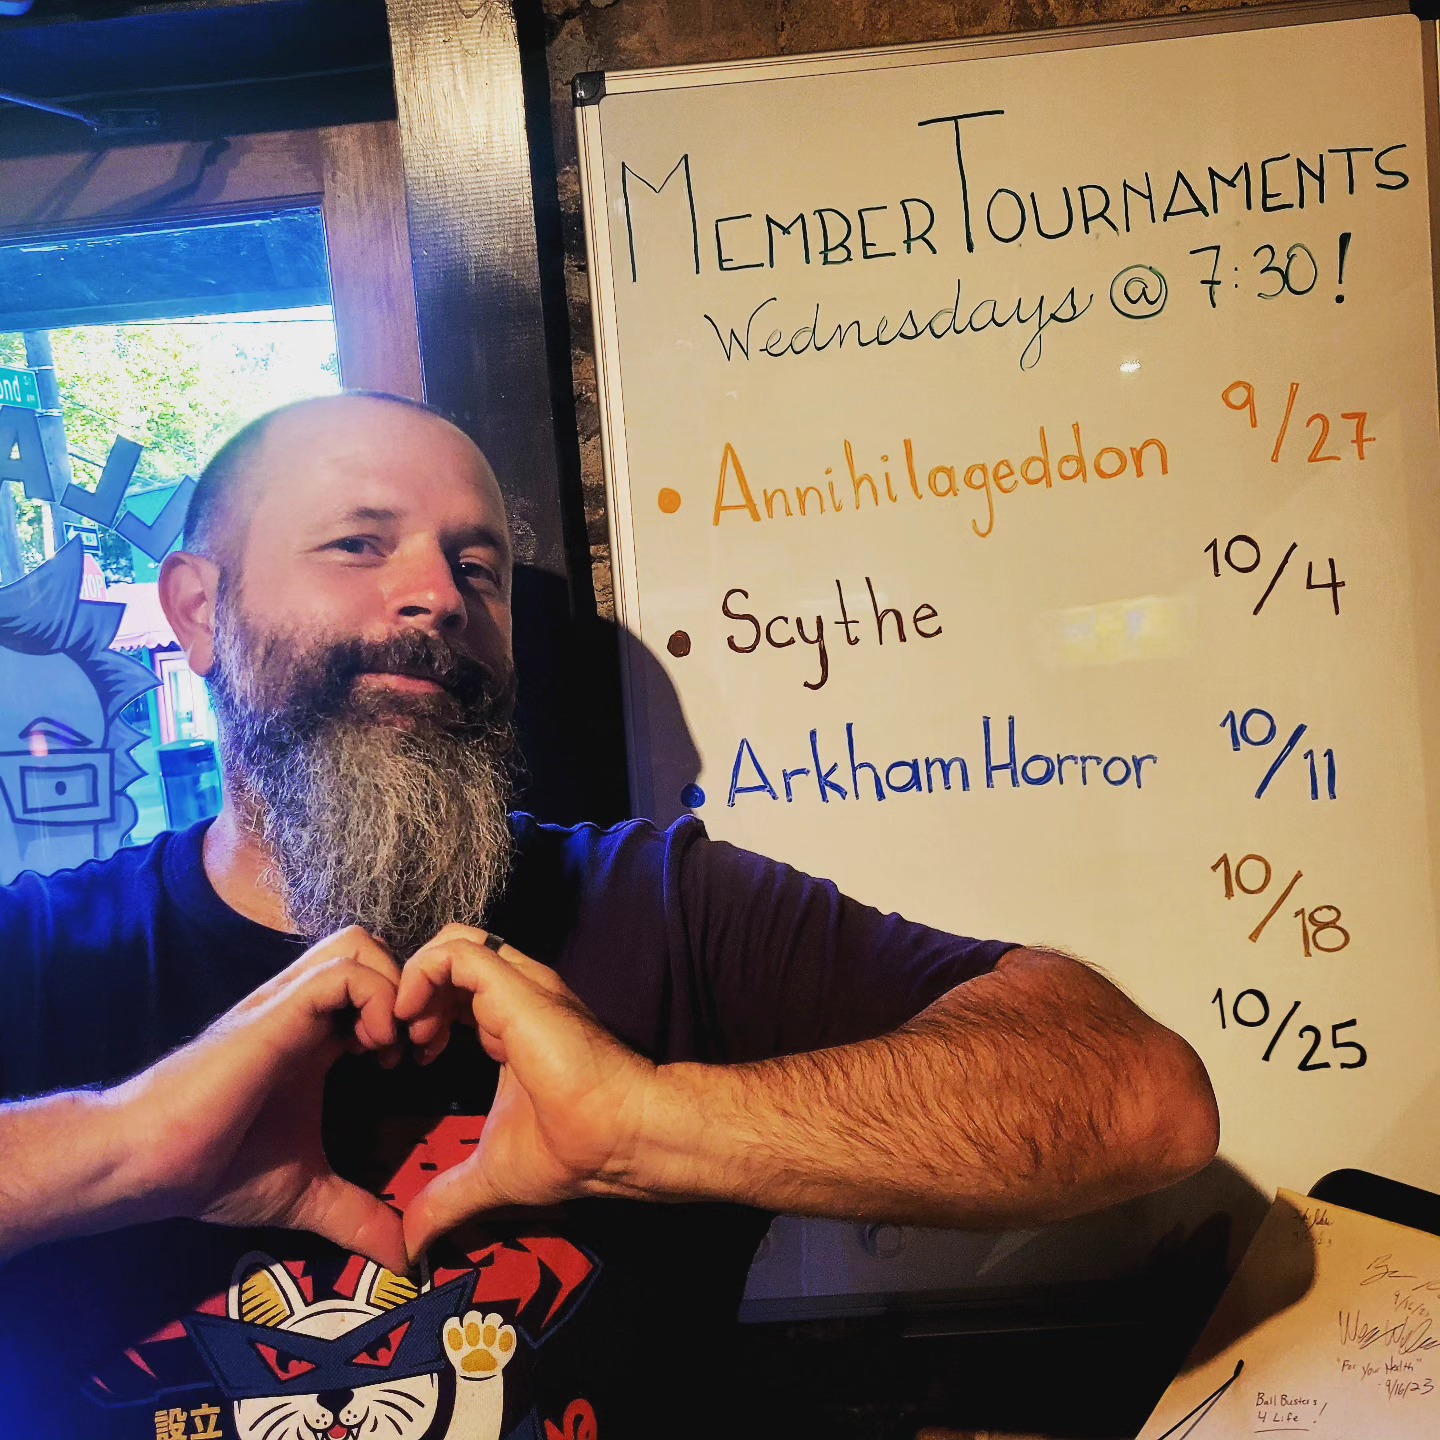 MEMBER TOURNAMENTS
Wednesdays @ 7:30!
• Annihilageddon 9/27
• Scythe 10/4
• Arkham Horror 10/11
10/18
10/25
ond ST
設立
9/16/23
"For Your Health"
9/16/23
Ball Busters
4 Life!